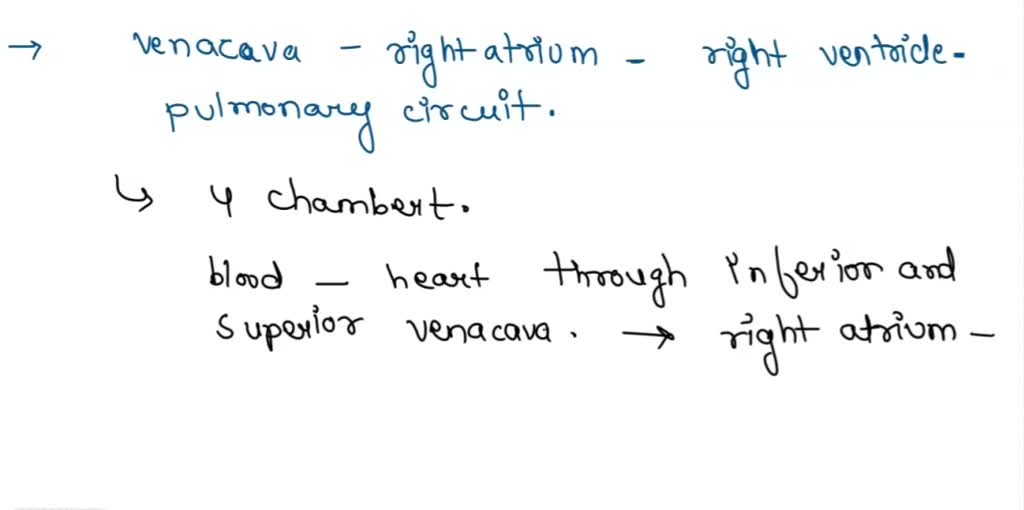 → venacava - right atrium - right ventricle -
pulmonary circuit.
↳ 4 chambert.
blood - heart through Inferior and
superior venacava. → right atrium -